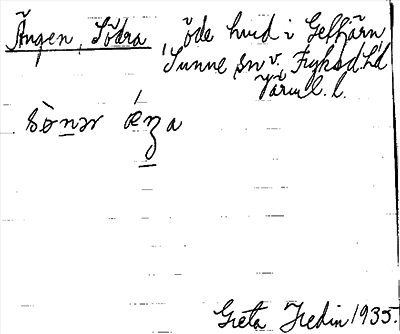 Ängen, Södra öde hmd i Getkärn,
Sunne sn v. Fryksd. hd
Värml. l.
sònər ǽza
Greta Hedin 1935.